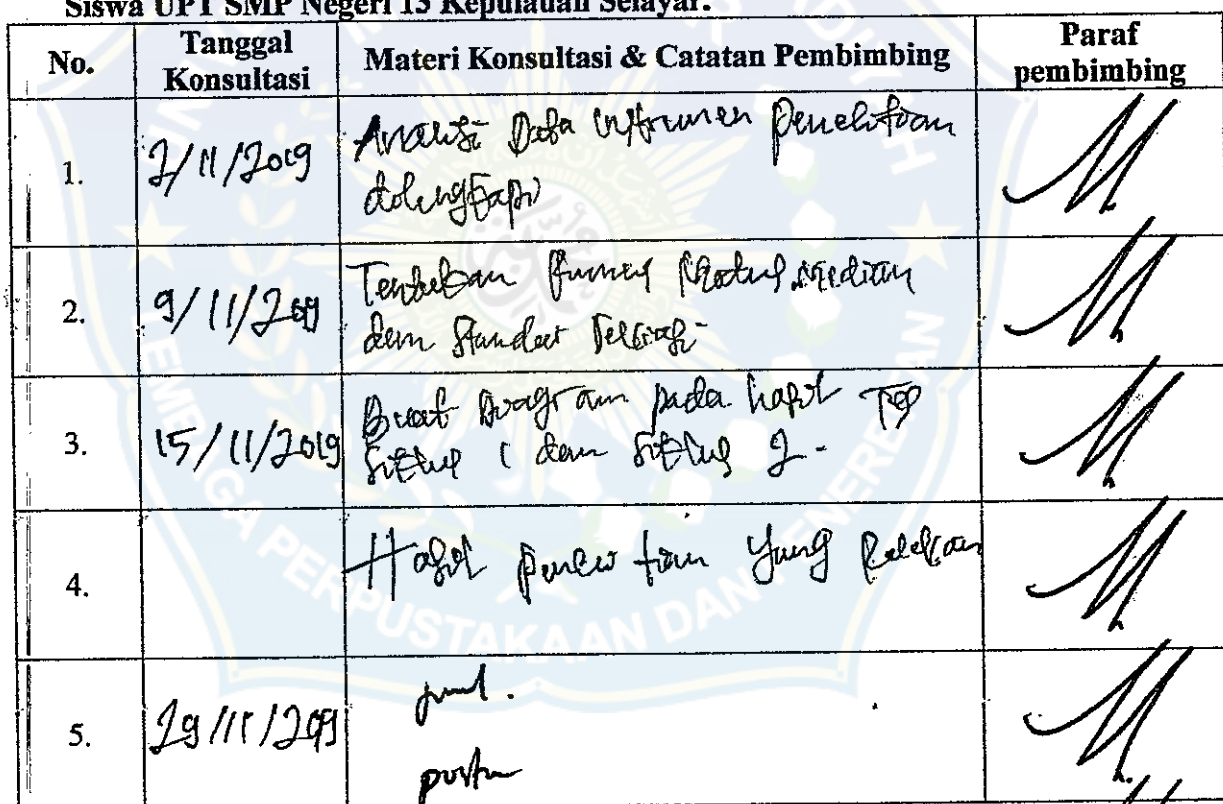 Siswa UPT SMP Negeri 13 Kepulauan Selayar.
No. Tanggal Konsultasi Materi Konsultasi & Catatan Pembimbing Paraf pembimbing
1. 2/11/2019 Analisi Data instrumen penelitian
dilengkapi
2. 9/11/2019 Tentukan rumus Modus, Median
dan Standar Deviasi
3. 15/11/2019 Buat Diagram pada hasil Tes
Siklus 1 dan Siklus 2.
4. Hasil penelitian yang Relevan
5. 29/11/2019
LEMBAGA PERPUSTAKAAN DAN PENERBITAN